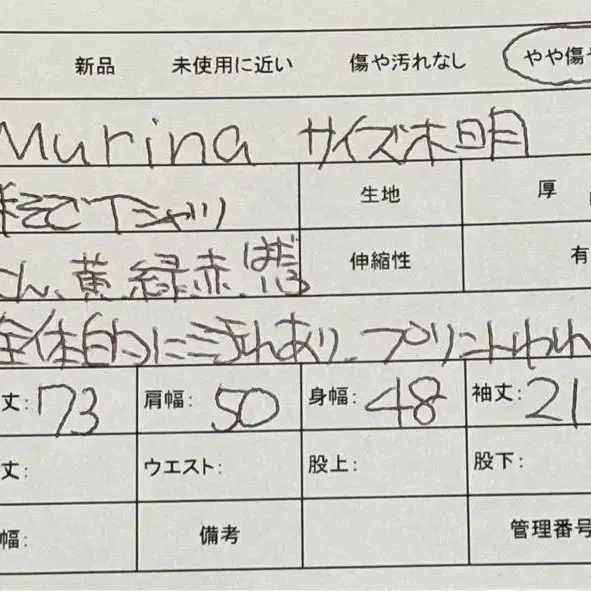 新品 未使用に近い 傷や汚れなし やや傷や
Murina サイズ不明
半そでTシャツ 生地 厚
こん、黄、緑、赤、はだいろ 伸縮性 有
全体的によごれあり、プリントわれ
丈: 73 肩幅: 50 身幅: 48 袖丈: 21
丈: ウエスト: 股上: 股下:
幅: 備考 管理番号